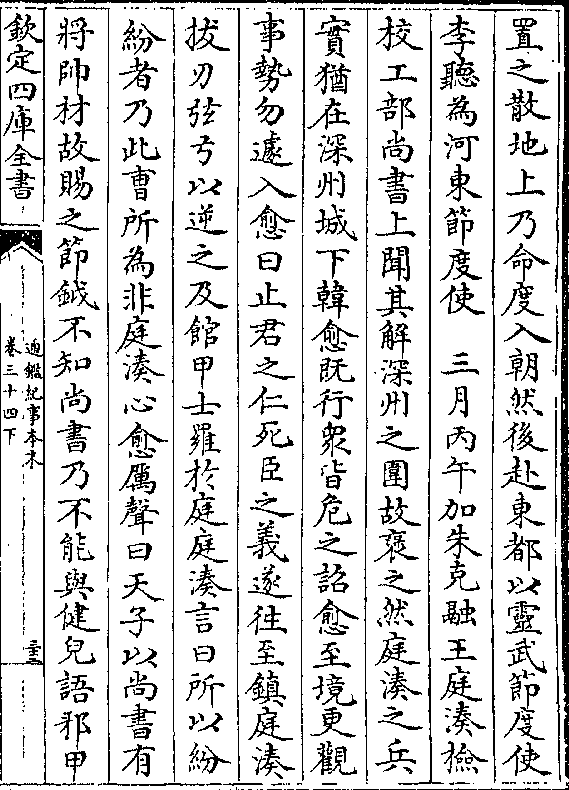 置之散地上乃命度入朝然後赴東都以靈武節度使
李聽為河東節度使　三月丙午加朱克融王庭湊檢
校工部尚書上聞其解深州之圍故褒之然庭湊之兵
實猶在深州城下韓愈既行衆皆危之詔愈至境更觀
事勢勿遽入愈曰止君之仁死臣之義遂往至鎮庭湊
拔刃弦弓以逆之及館甲士羅於庭庭湊言曰所以紛
紛者乃此曹所為非庭湊心愈厲聲曰天子以尚書有
將帥材故賜之節鉞不知尚書乃不能與健兒語邪甲
欽定四庫全書
通鑑紀事本末
卷三十四下